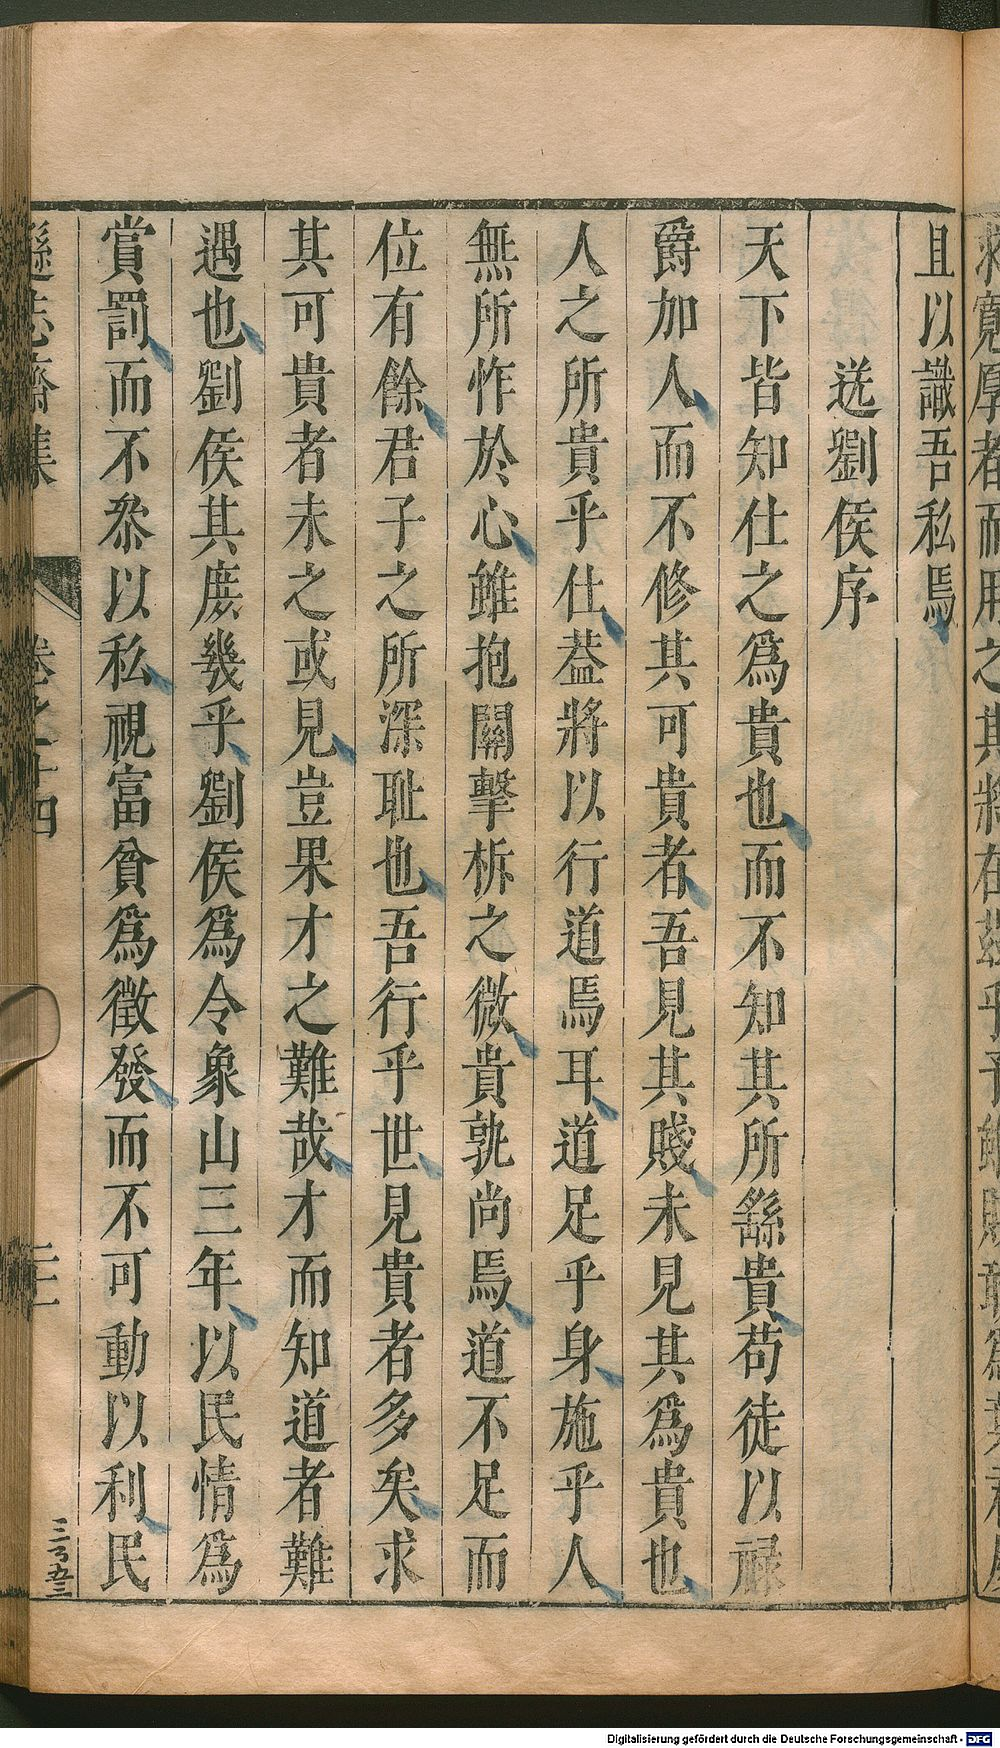 且以識吾私焉
送劉侯序
天下皆知仕之爲貴也而不知其所繇貴苟徒以祿
爵加人而不修其可貴者吾見其賤未見其爲貴也
人之所貴乎仕葢將以行道焉耳道足乎身施乎人
無所怍於心雖抱關擊柝之微貴孰尚焉道不足而
位有餘君子之所深耻也吾行乎世見貴者多矣求
其可貴者未之或見豈果才之難哉才而知道者難
遇也劉侯其庶幾乎劉侯爲令象山三年以民情爲
賞罰而不叅以私視富貧爲徵發而不可動以利民
遜志齋集 卷之十四 二十一
三百五三
Digitalisierung gefördert durch die Deutsche Forschungsgemeinschaft - DFG